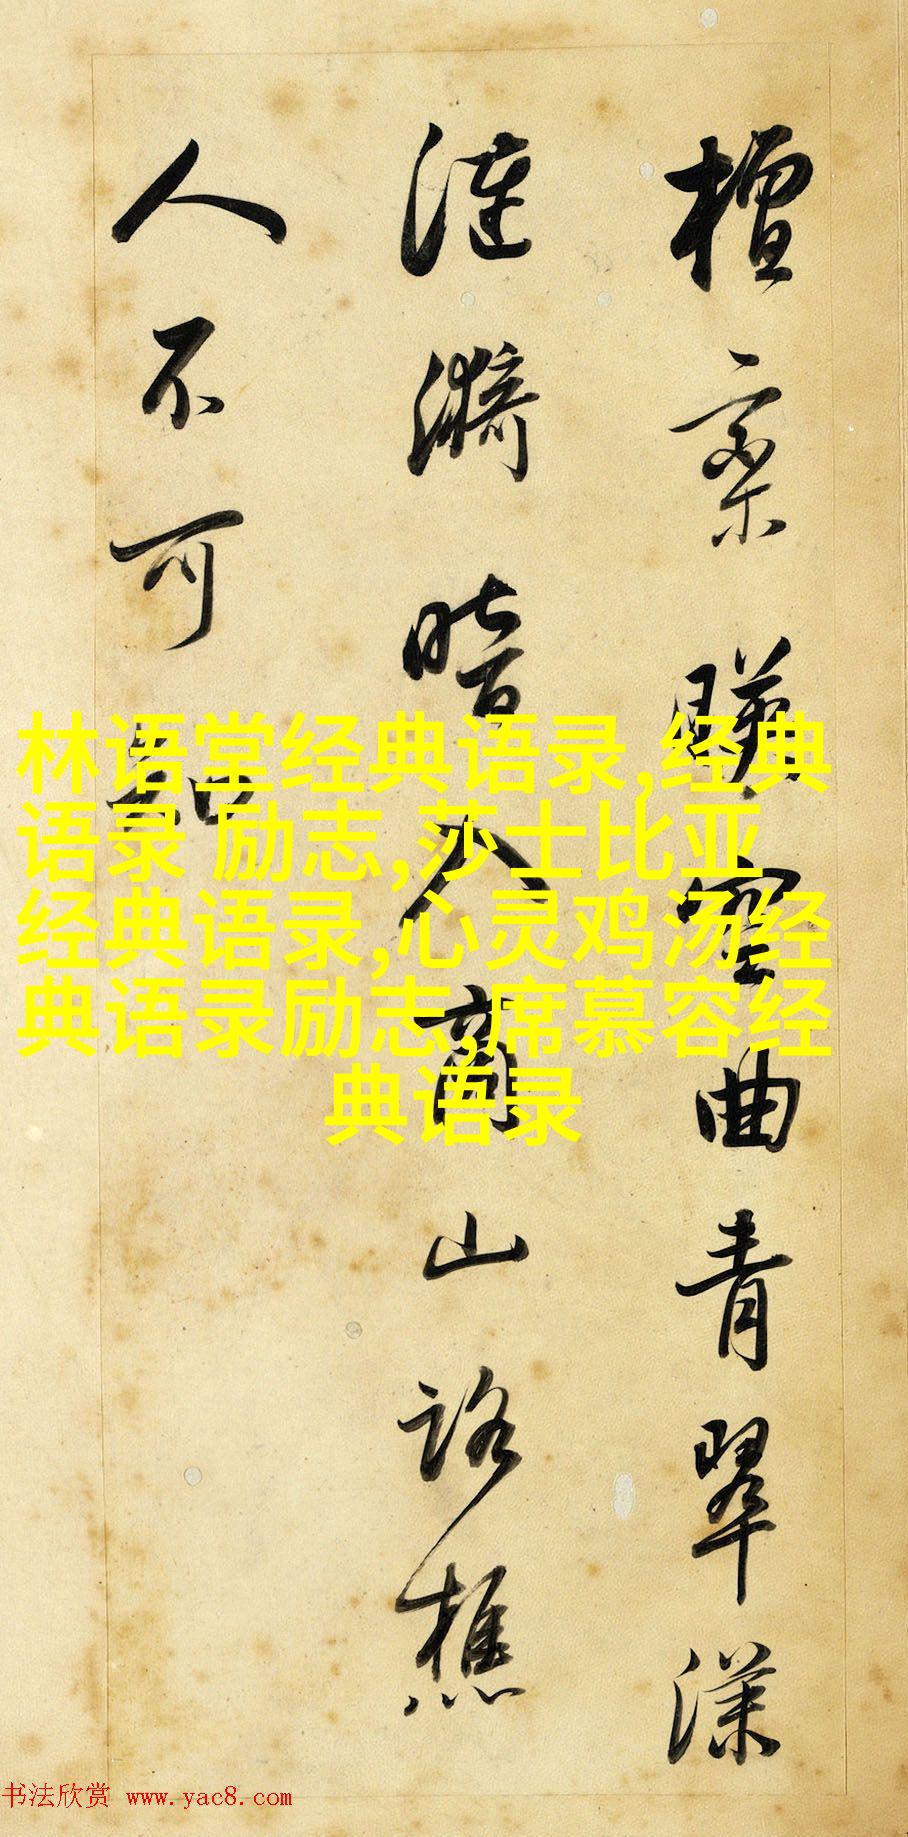 檀栾暎空曲青翠漾
漣漪暗入商山路樵
人不可知
林语堂经典语录,经典
语录 励志,莎士比亚
经典语录,心灵鸡汤经
典语录励志,席慕容经
典语录
书法欣赏 www.yac8.com